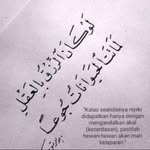 لو كان الرزق بالعقل
لماتت الحيوانات جوعا
"Kalau seandainya rejeki
didapatkan hanya dengan
mengandalkan akal
(kecerdasan), pastilah
hewan-hewan akan mati
kelaparan."